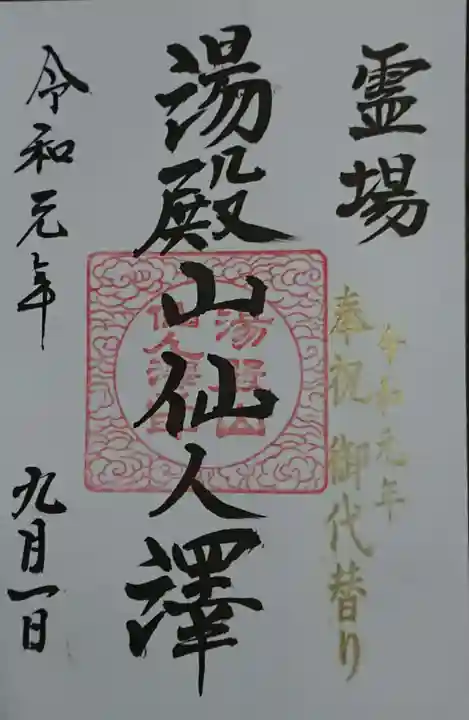 霊場
令和元年
奉祝 御代替り
湯殿山仙人澤
湯殿山
仙人澤印
令和元年
九月一日